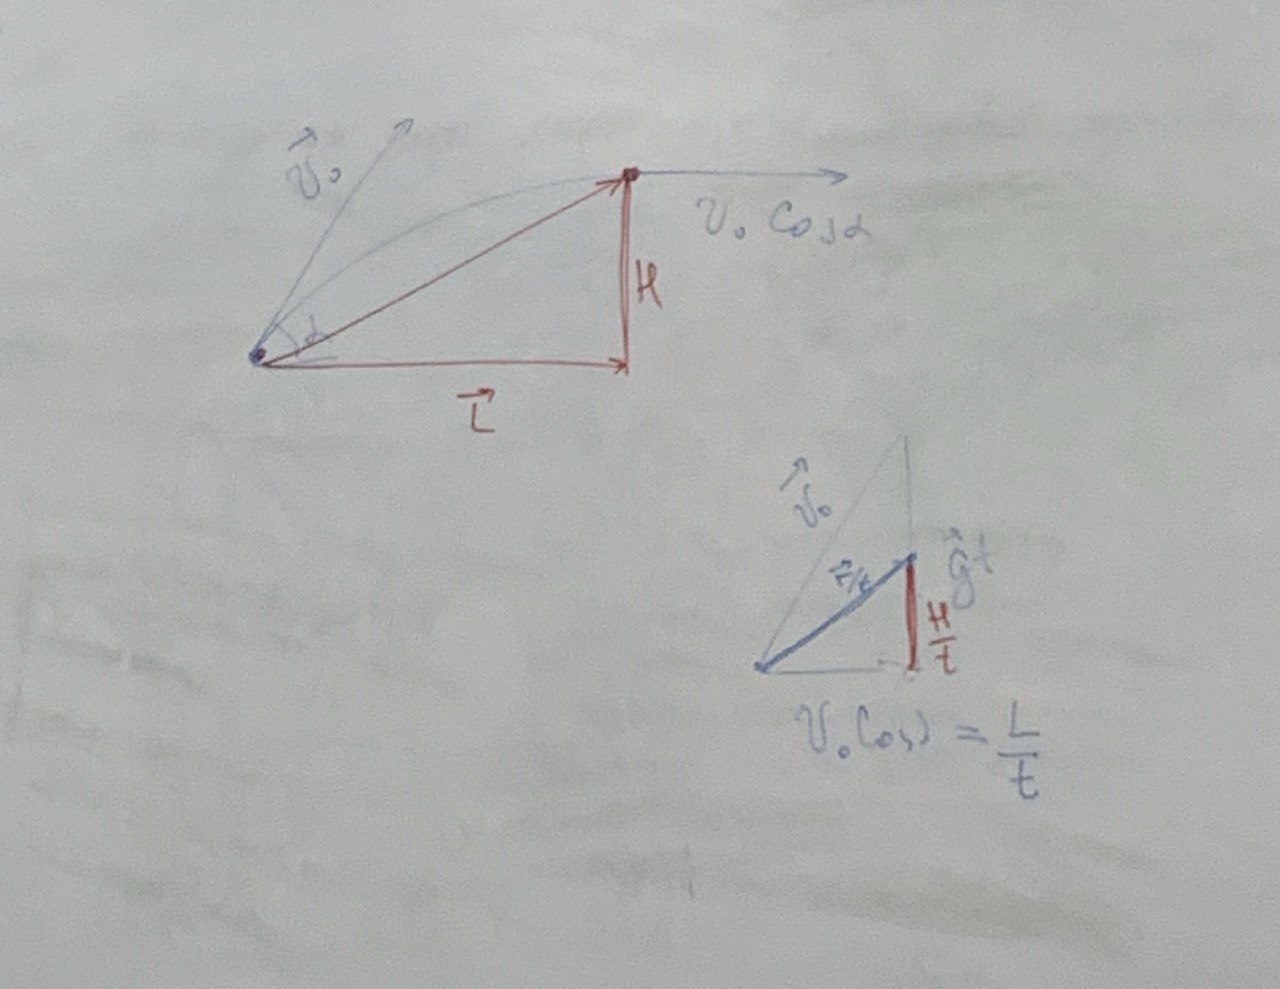 v⃗₀
v₀ cosα
α
H
L⃗
v⃗₀
r⃗/t
g⃗t
H/t
v₀ cosα = L/t